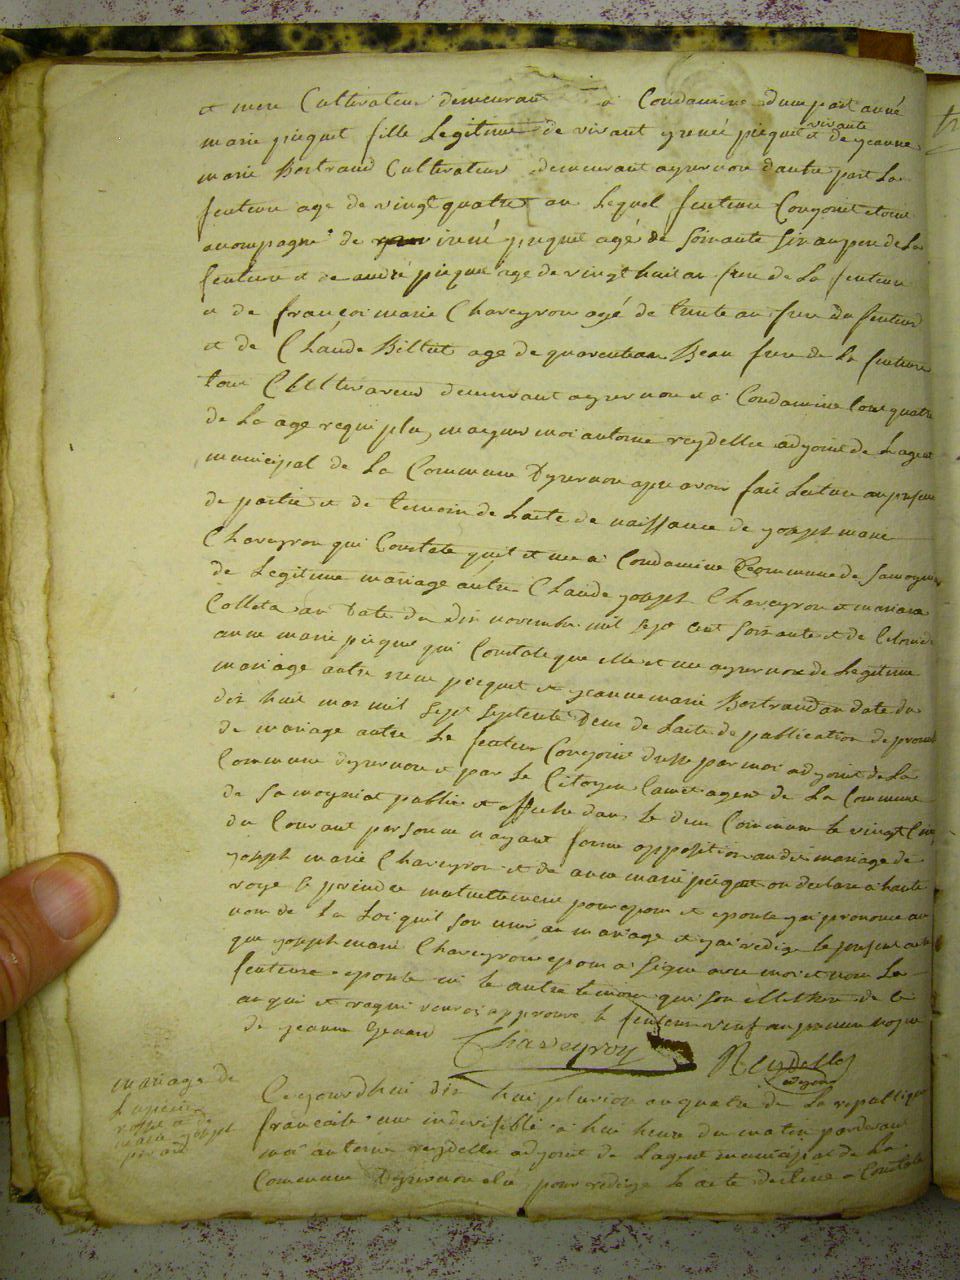 et mere Cultivateur demeurant a Condamine dune part anne
marie picquet fille Legitime de vivant yrenée picquet et de vivante jeanne
marie Bertrand Cultivateur demeurant a yzernore dautre part La
future age de vingt quatre an Lequel futeur Conjoint etoient
acompagné de irené picquet agé de soixante six an pere de La
future et de andré picquet age de vingt huit an frere de La future
et de françoi marie Chaveyron agé de trente an frere du futeur
et de Claude Billiet age de quarente an Beau frere de La future
tous Cultivateur demeurant a yzernore et a Condamine tous quatre
de La age requi plu majeur moi antoine reydellet adjoint de Lagent
municipal de La Commune Dyzernore apre avoir fait Lecture en presence
de partie et de temoin de Lacte de naissance de joseph marie
Chaveyron qui Constate quil et né a Condamine Commune de Samognia
de Legitime mariage antre Claude joseph Chaveyron et mariana
Colleta an date du dix novembre mil sept cent soixante et de Celui de
anne marie picquet qui Constate que elle et née a yzernore de Legitime
mariage antre rene picquet et jeanne marie Bertrand an date du
dix huit mar mil sept septente deux de Lacte de publication de promesse
de mariage antre Le futeur Conjoint dressé par moi adjoint de La
Commune dyzernore et par Le Citoyen Camet agent de La Commune
de Samogniat publié et affiché dans le deux Commune le vingt cinq
du Courant personne nayant formé opposition au dit mariage de
joseph marie Chaveyron et de anne marie picquet on declaré a haute
voye se prendre mutuellement pour epoux et epouse jai prononcé au
nom de La Loi quil son unis an mariage et jai redigé le present acte
que joseph marie Chaveyron epoux a signé avec moi et non La
future epouse ni le autre temoin qui son illettré de ce
anqui et requi renvoi approuvé le futeur veuf an premiere noce
de jeanne Genard
Chaveyron Reydellet
adjoint
mariage de
Cejourdhui dix huit pluviose an quatre de La republique
française une indivisible a huit heure du matin pardevant
moi antoine reydellet adjoint de Lagent municipal de La
Commune Dyzernore elu pour rediger le acte destiné a Constater
marie joseph